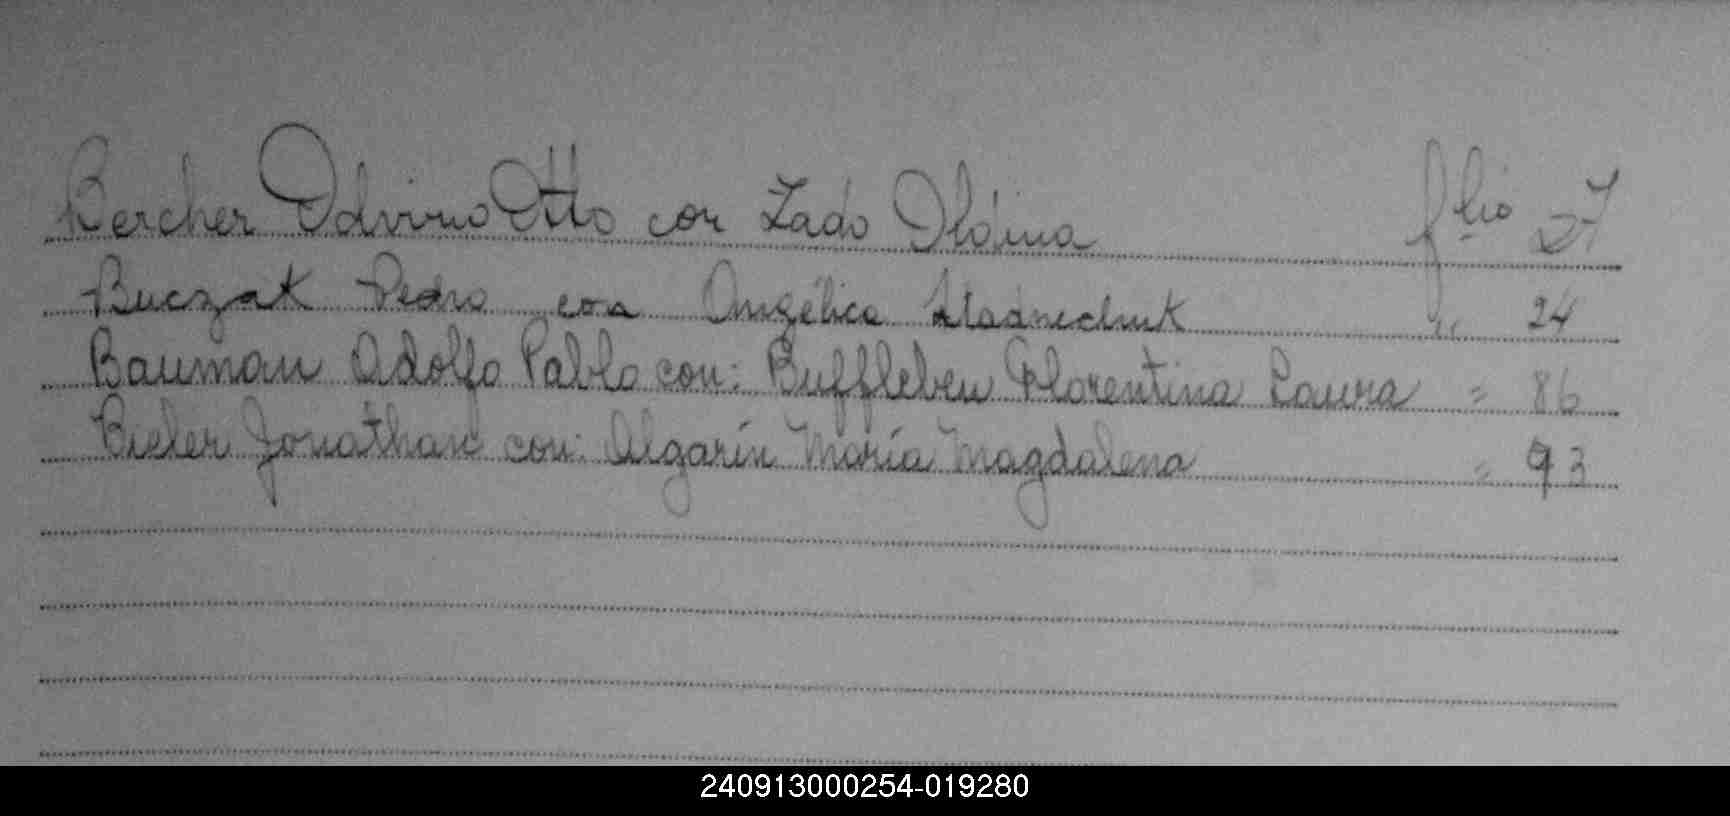 Bercher Odvino Otto con Zado Ildina flio 27
Buczak Pedro con Angélica " 24
Bauman Adolfo Pablo con: Buffleben Florentina Laura = 86
Bieler Jonathan con: Algarín María Magdalena = 93
240913000254-019280